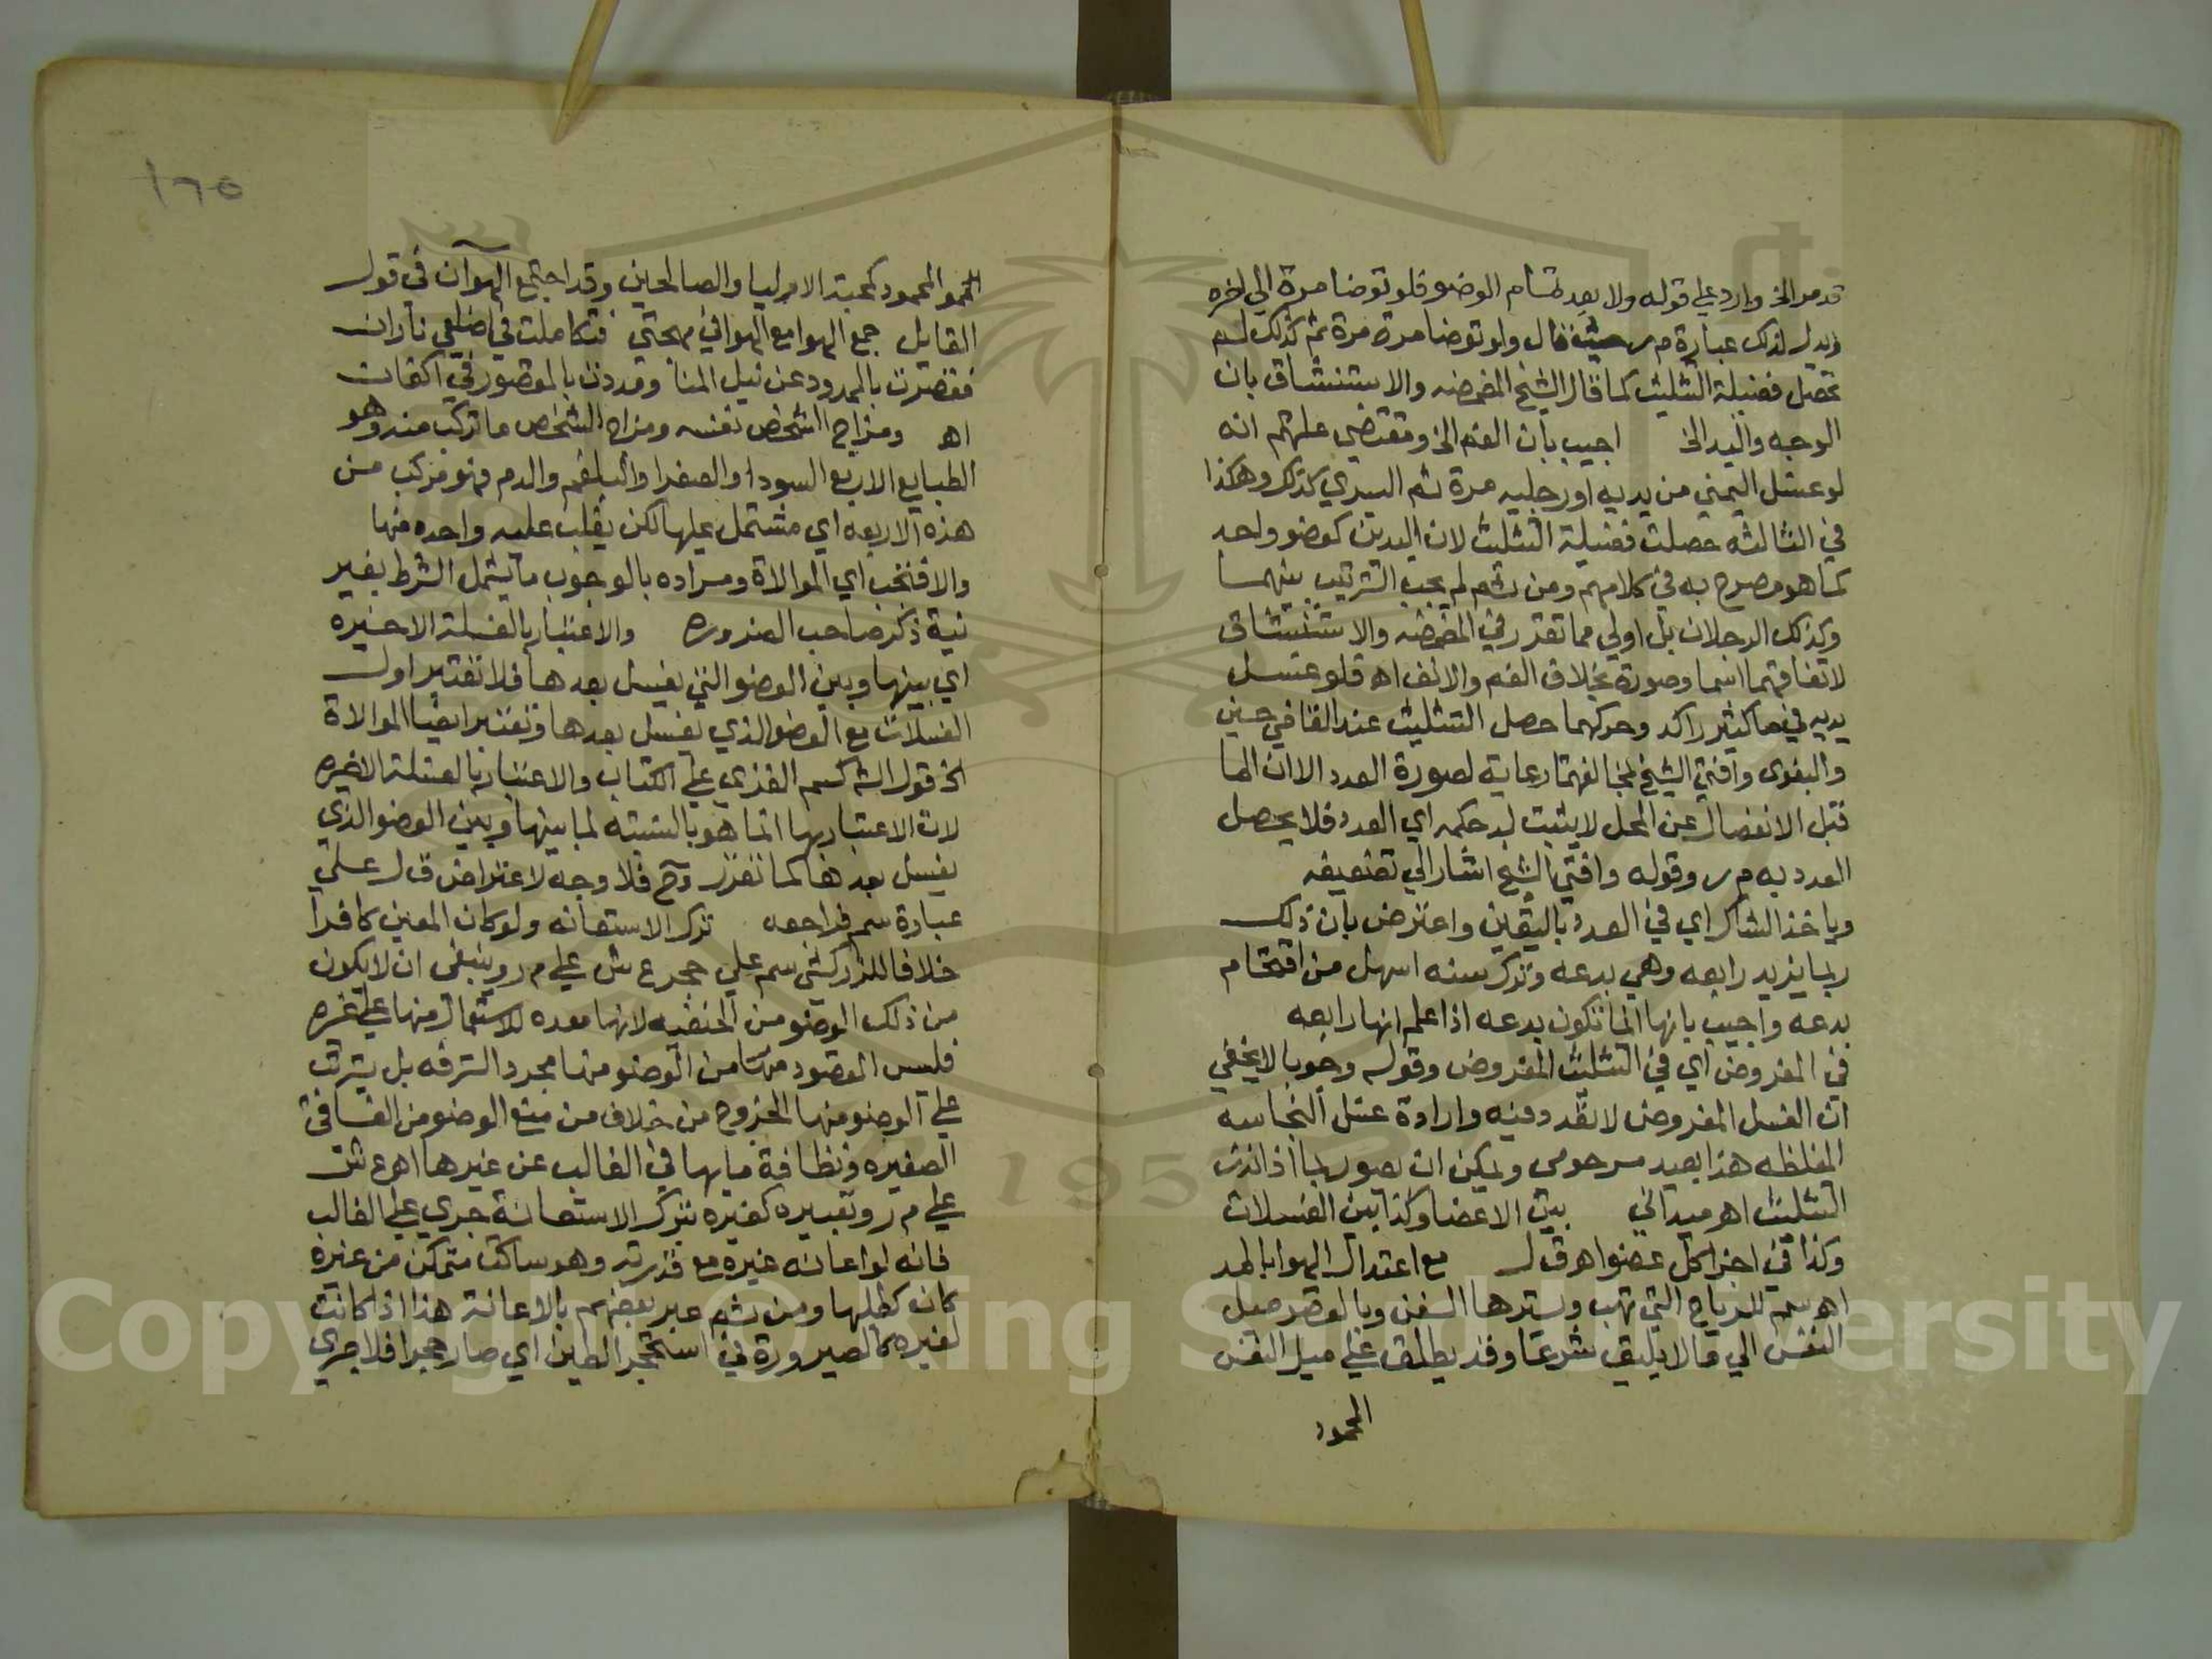 قدمر الخ وارد علي قوله ولا بعد تمام الوضو فلو توضا مرة الي اخره
ويدل لذلك عبارة م ر حيث قال ولو توضا مرة مرة ثم كذلك لم
تحصل فضيلة التثليث كما قال الشيخ المضمضه والاستنشاق بان
الوجه واليد الخ اجيب بان الفم الخ ومقتضي علتهم انه
لو غسل اليمني من يديه او رجليه مرة ثم اليسري كذلك وهكذا
في الثالثه حصلت فضيلة التثليث لان اليدين كعضو واحد
كما هو مصرح به في كلامهم ومن ثم لم يجب الترتيب بينهما
وكذلك الرجلان بل اولي مما تقرر في المضمضه والاستنشاق
لاتفاقهما اسما وصورة بخلاف الفم والانف اه فلو غسل
يديه في ما كثير راكد وحركهما حصل التثليث عند القاضي حسين
والبغوي وافتي الشيخ بمخالفتهما رعاية لصورة العدد الا ان الما
قبل الانفصال عن المحل لا يثبت له حكمه اي العدد فلا يحصل
العدد به م ر وقوله وافتي الشيخ اشار الي تضعيفه
وياخذ الشاك اي في العدد باليقين واعترض بان ذلك
ربما يزيد رابعه وهي بدعه وترك سنه اسهل من اقتحام
بدعه واجيب بانها انما تكون بدعه اذا علم انها رابعه
في المفروض اي في التثليث المفروض وقوله وجوبا لا يخفي
ان الغسل المفروض لا تعدد فيه وارادة غسل النجاسه
المغلظه هذا بعيد مرحومي ويمكن ان يصور بما اذا نذر
التثليث اه ميداني بين الاعضا وكذا بين الغسلات
وكذا في اجزا كل عضو اه ق ل مع اعتدال الهوا بالمد
اه سم للرياح التي تهب وتسترها السفن وبالقصر ميل
النفس الي ما لا يليق شرعا وقد يطلق علي ميل النفس
المحمود
١٦٥
المحمود كمحبة الاوليا والصالحين وقد اجتمع الهوآن في قول
القايل جمع الهوا مع الهوا في مهجتي فتكاملت في اضلعي ناران
فقصرت بالممدود عن نيل المنا ومددت بالمقصور في اكفان
اه ومزاج الشخص نفسه ومزاج الشخص ما تركب منه وهو
الطبايع الاربع السودا والصفرا والبلغم والدم فهو مركب من
هذه الاربعه اي مشتمل عليها لكن يغلب عليه واحده منها
والا فتجب اي الموالاة ومراده بالوجوب ما يشمل الشرط بغير
نية ذكر صاحب الضروره والاعتبار بالغسلة الاخيره
اي بينها وبين العضو التي يغسل بعدها فلا تعتبر اول
الغسلات مع العضو الذي يغسل بعدها وتعتبر ايضا الموالاة
الخ قول الش كسم الغزي علي الكتاب والاعتبار بالغسلة الاخيره
لان الاعتبار بها انما هو بالنسبه لما بينها وبين العضو الذي
يغسل بعدها كما تقرر وح فلا وجه لاعتراض ق ل علي
عبارة سم فراجعه ترك الاستعانه ولو كان المعين كافرا
خلافا للزركشي سم علي حجر ع ش علي م ر وينبغي ان لا يكون
من ذلك الوضو من الحنفيه لانها معده للاستعمال منها علي غيره
فليس المقصود منها من الوضو منها مجرد الترفه بل يترتب
علي الوضو منها الخروج من خلاف من منع الوضو من الفساقي
الصغيره ونظافة مايها في الغالب عن غيرها اه ع ش
علي م ر وتعبيره كغيره بترك الاستعانة جري علي الغالب
فانه لو اعانه غيره مع قدرته وهو ساكت متمكن من غيره
كان كطلبها ومن ثم عبر بعضهم بالاعانة هذا اذا كانت
لغيره كالصيرورة في استحجر الطين اي صار حجرا فلا جري